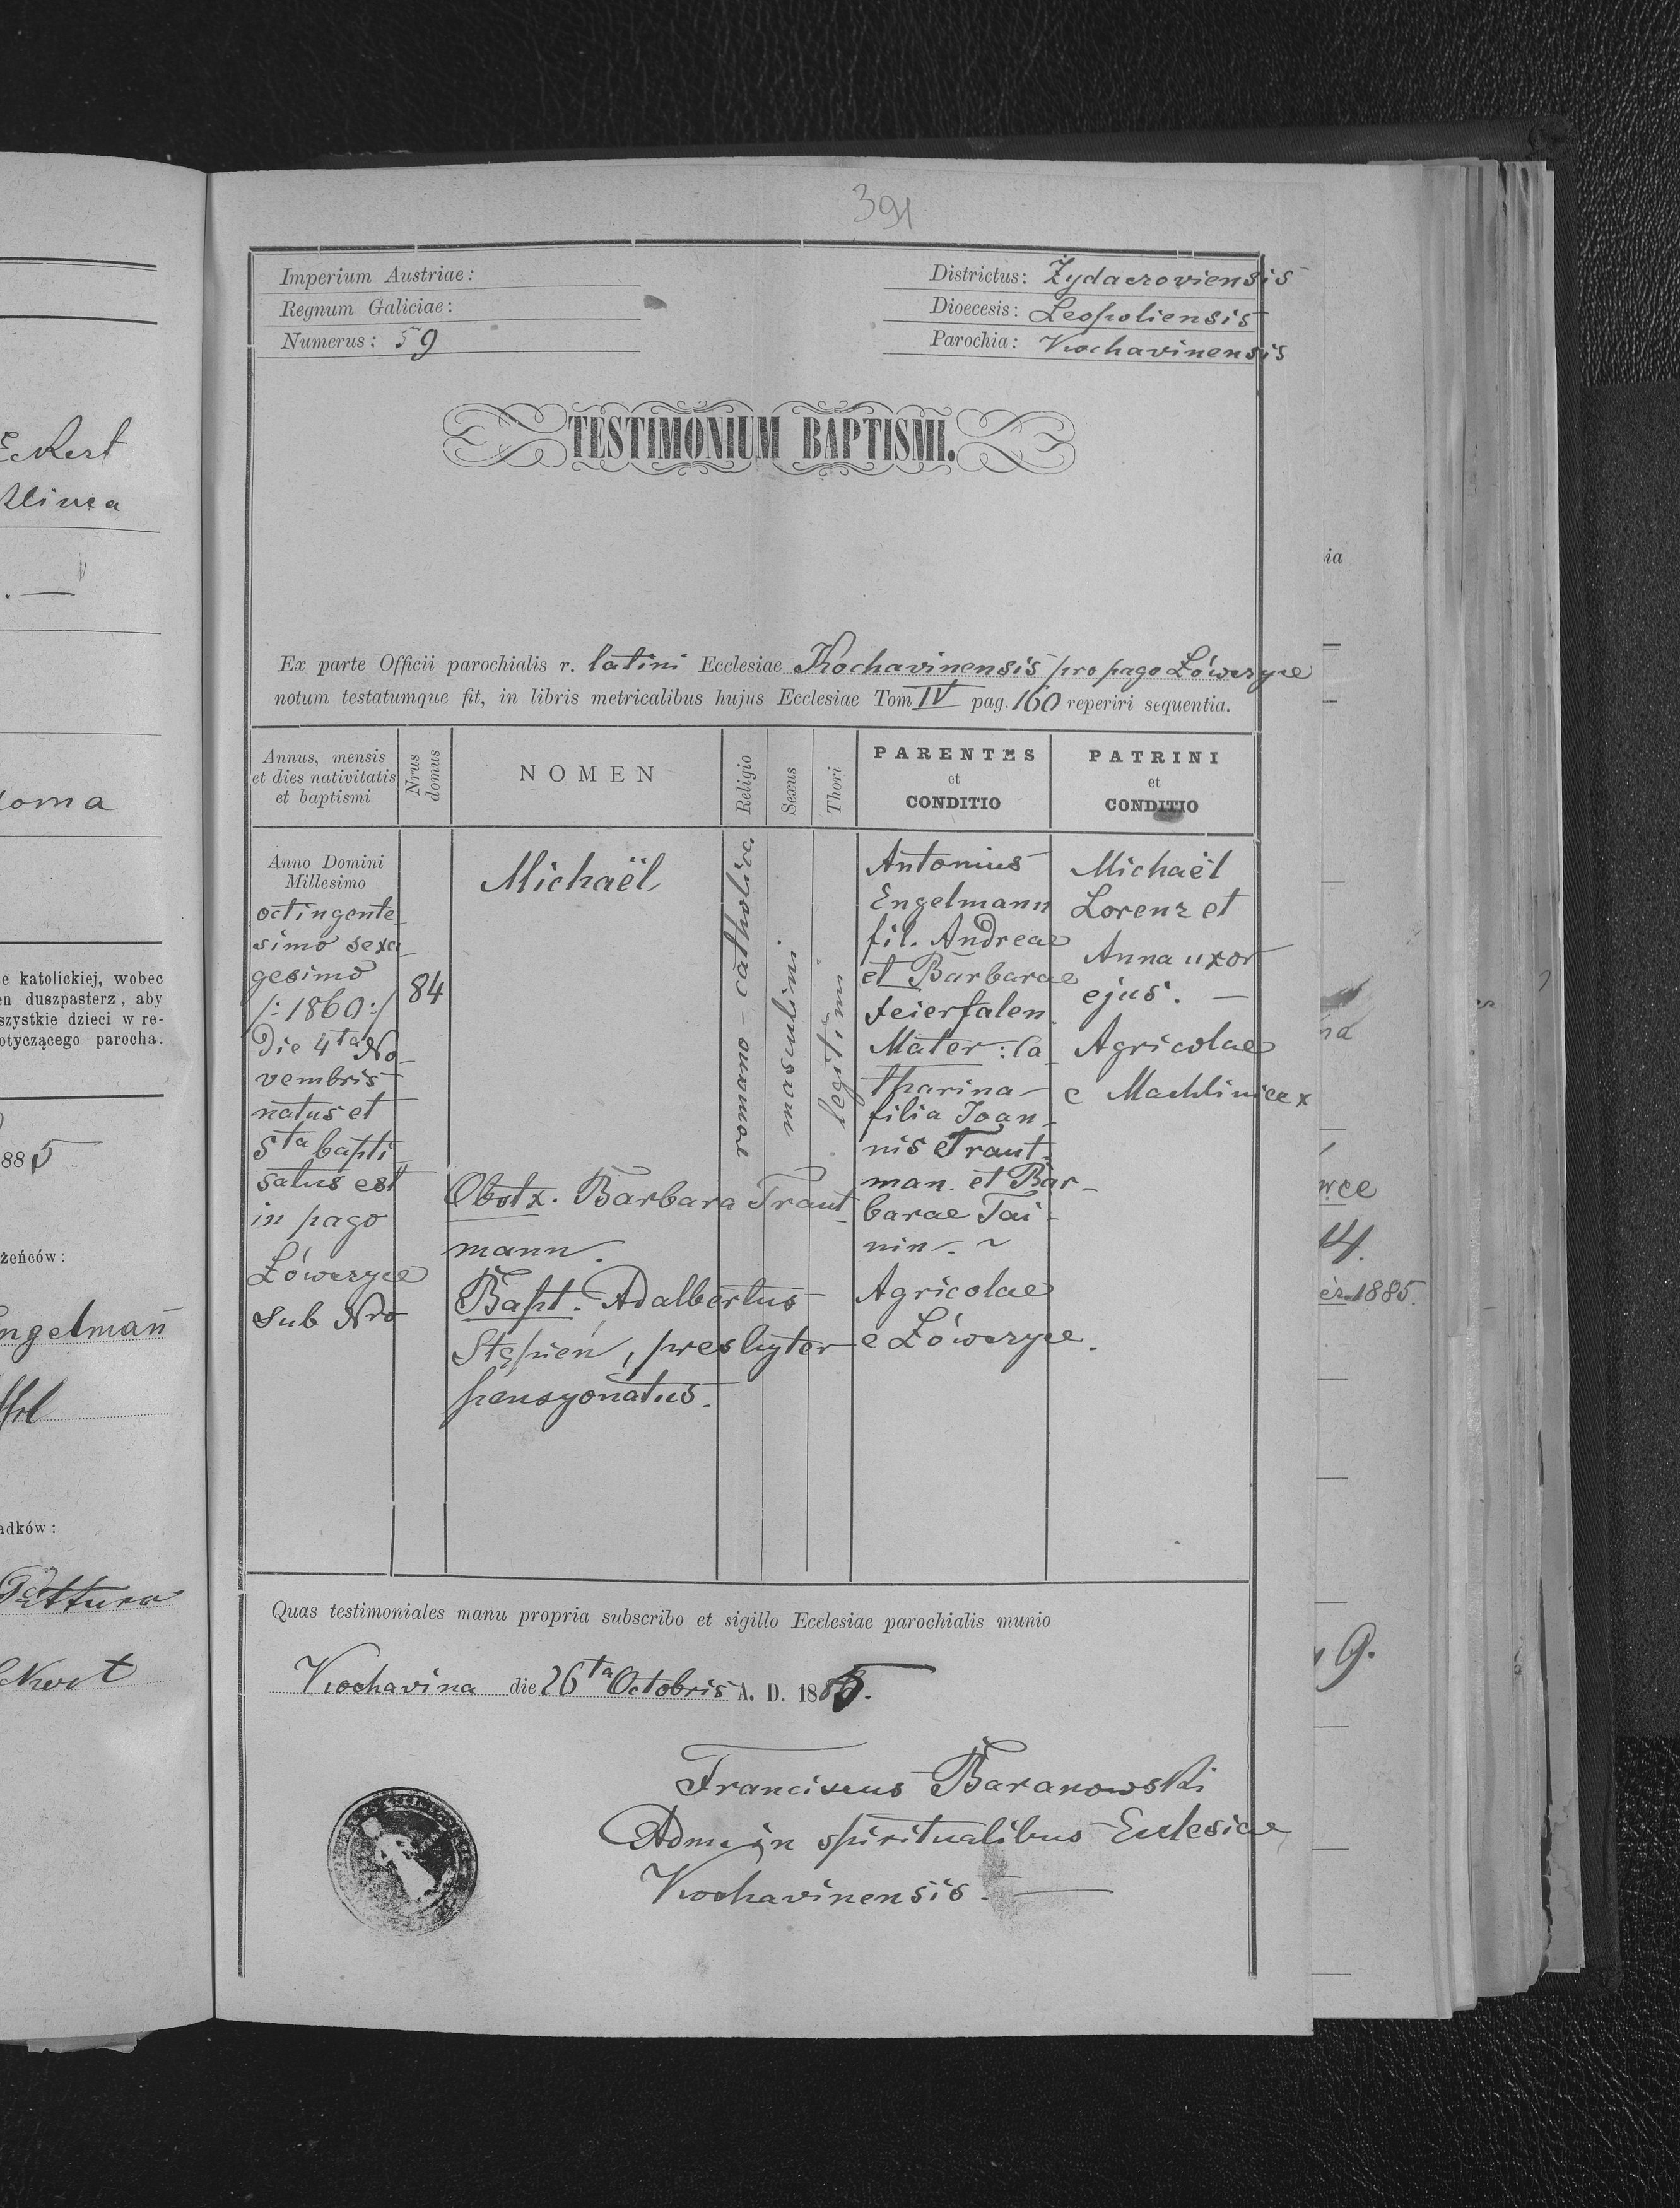 391
Imperium Austriae:
Regnum Galiciae:
Numerus: 59
Districtus: Żydaczoviensis
Dioecesis: Leopoliensis
Parochia: Kochavinensis
TESTIMONIUM BAPTISMI.
Ex parte Officii parochialis r. latini Ecclesiae Kochavinensis pro pago Łówczyce
notum testatumque fit, in libris metricalibus hujus Ecclesiae Tom IV pag. 160 reperiri sequentia.
Annus, mensis
et dies nativitatis
et baptismi
Nrus
domus
NOMEN
Religio
Sexus
Thori
PARENTES
et
CONDITIO
PATRINI
et
CONDITIO
Anno Domini
Millesimo
octingente
simo sexa
gesimo
/:1860:/
Die 4ta No
vembris
natus et
5ta bapti
satus est
in pago
Łówczyce
sub Nro
84
Michaël
Obstx. Barbara Traut
mann.
Bapt. Adalbertus
Stępień, presbyter
pensyonatus.
romano-catholica
masculini
legitimi
Antonius
Engelmann
fil. Andreae
et Barbarae
Feierfalen
Mater: Ca
tharina
filia Joan
nis Traut
man. et Bar-
barae Tai
nin. ~
Agricolae
e Łówczyce.
Michaël
Lorenz et
Anna uxor
ejus. —
Agricolae
e Machliniec
Quas testimoniales manu propria subscribo et sigillo Ecclesiae parochialis munio
Kochavina die 26ta Octobris A. D. 1885.
Franciscus Baranowski
Adm. in spiritualibus Ecclesiae
Kochavinensis. —
Eckert
oma
e katolickiej, wobec
en duszpasterz, aby
szystkie dzieci w re-
otyczącego parocha.
885
żeńców:
ngelmann
adków:
ia
na
wce
14.
1885.
9.